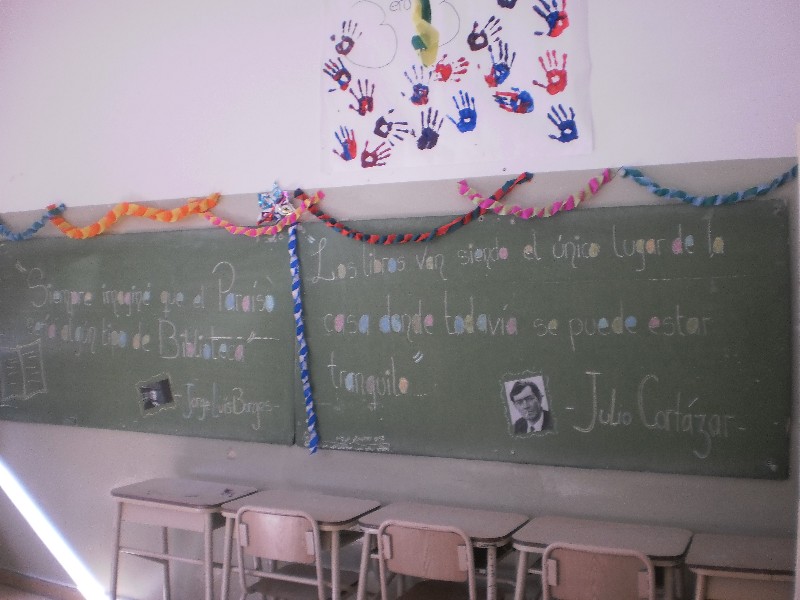 3 ero 3
"Siempre imaginé que el Paraíso
sería algún tipo de Biblioteca"
- Jorge Luis Borges -
"Los libros van siendo el único lugar de la
casa donde todavía se puede estar
tranquilo"
- Julio Cortázar -